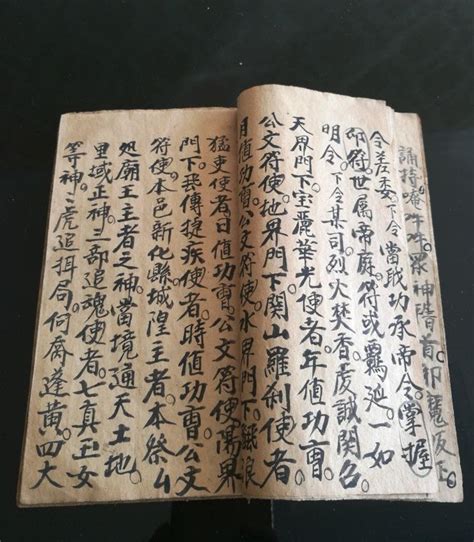 誦持唵吽吽眾神皆首卯魔反正。
令差委。下令當職功承帝令。掌握
邵符。世屬帝庭。符或覊延。一如
明令。下令某司。烈火焚香。虔誠関召。
天界門下宝麗華光使者。年值功曹。
公文符使。地界門下関山羅刹使者。
月值功曹。公文符使。水界門下
猛吏使者。日值功曹。公文符使。陽界
門下飛傳捷疾使者。時值功曹。公文
符使。本邑新化縣城隍主者。本祭
処廟王主者之神。當境通天土地。
里域正神。二部追魂使者。七真玉女
等神。二虎追捉局。何喬逢黃四大